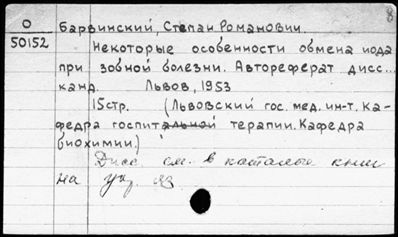 О
50152
Барвинский, Степан Романович.
Некоторые особенности обмена иода
при зобной болезни. Автореферат дисс...
канд. Львов, 1953
15 стр. (Львовский гос. мед. ин-т. Ка-
федра госпитальной терапии. Кафедра
биохимии.)
Дисс. см. в каталоге книг
на укр. яз.
8